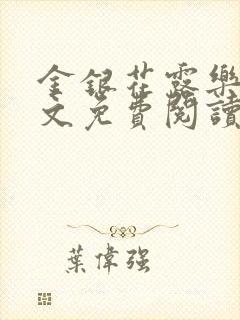 金銀花露樂
文免費閱讀
葉偉强